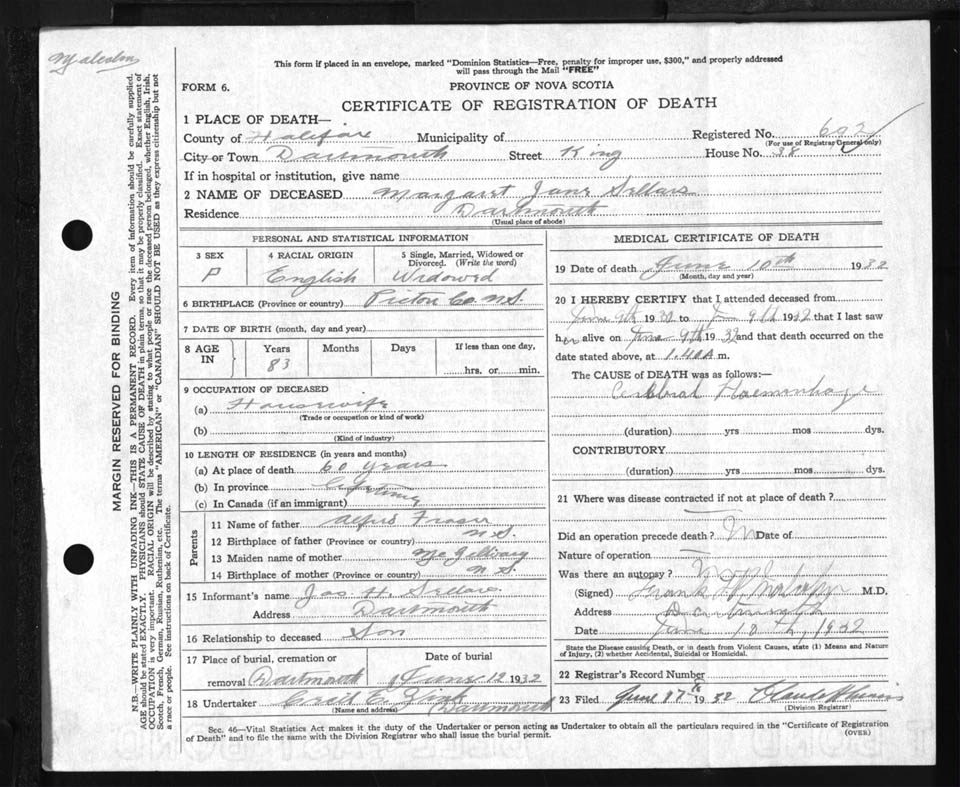 Malcolm
This form if placed in an envelope, marked "Dominion Statistics—Free, penalty for improper use, $300," and properly addressed
will pass through the Mail "FREE"
FORM 6.
PROVINCE OF NOVA SCOTIA
CERTIFICATE OF REGISTRATION OF DEATH
1 PLACE OF DEATH—
County of Halifax Municipality of Registered No. 692
(For use of Registrar General only)
City or Town Dartmouth Street King House No. 38
If in hospital or institution, give name
2 NAME OF DECEASED Margaret Jane Sellars
Residence Dartmouth
(Usual place of abode)
PERSONAL AND STATISTICAL INFORMATION
3 SEX 4 RACIAL ORIGIN 5 Single, Married, Widowed or
Divorced. (Write the word)
F English Widowed
6 BIRTHPLACE (Province or country) Pictou Co. N.S.
7 DATE OF BIRTH (month, day and year)
8 AGE IN Years Months Days If less than one day,
83 hrs. or min.
9 OCCUPATION OF DECEASED
(a) Housewife
(Trade or occupation or kind of work)
(b)
(Kind of industry)
10 LENGTH OF RESIDENCE (in years and months)
(a) At place of death 60 years
(b) In province
(c) In Canada (if an immigrant)
Parents
11 Name of father Alfred Fraser
12 Birthplace of father (Province or country) N.S.
13 Maiden name of mother McGillivary
14 Birthplace of mother (Province or country) N.S.
15 Informant's name Jas H. Sellars
Address Dartmouth
16 Relationship to deceased Son
17 Place of burial, cremation or Date of burial
removal Dartmouth June 12 1932
18 Undertaker Cecil E. Zink Dartmouth
(Name and address)
MEDICAL CERTIFICATE OF DEATH
19 Date of death June 10th 1932
(Month, day and year)
20 I HEREBY CERTIFY that I attended deceased from
June 9th 1932 to June 9th 1932 that I last saw
her alive on June 9th 1932 and that death occurred on the
date stated above, at 1.40 A m.
The CAUSE OF DEATH was as follows:—
Cerebral Haemorrhage
(duration) yrs mos dys.
CONTRIBUTORY
(duration) yrs mos dys.
21 Where was disease contracted if not at place of death?
Did an operation precede death? No Date of
Nature of operation
Was there an autopsy? No
(Signed) Frank M.D.
Address Dartmouth
Date June 10th, 1932
State the Disease causing Death, or in death from Violent Causes, state (1) Means and Nature
of Injury, (2) whether Accidental, Suicidal or Homicidal.
22 Registrar's Record Number
23 Filed June 1932
(Division Registrar)
Sec. 46—Vital Statistics Act makes it the duty of the Undertaker or person acting as Undertaker to obtain all the particulars required in the "Certificate of Registration
of Death" and to file the same with the Division Registrar who shall issue the burial permit.
(OVER)
MARGIN RESERVED FOR BINDING
N.B.—WRITE PLAINLY WITH UNFADING INK—THIS IS A PERMANENT RECORD. Every item of information should be carefully supplied.
AGE should be stated EXACTLY. PHYSICIANS should STATE CAUSE OF DEATH in plain terms, so that it may be properly classified. Exact statement of
OCCUPATION is very important. RACIAL ORIGIN will be described by stating to what people or race the deceased person belonged, whether English, Irish,
Scotch, French, German, Russian, Ruthenian, etc. The terms "AMERICAN" or "CANADIAN" SHOULD NOT BE USED as they express citizenship but not
a race or people. See instructions on back of Certificate.